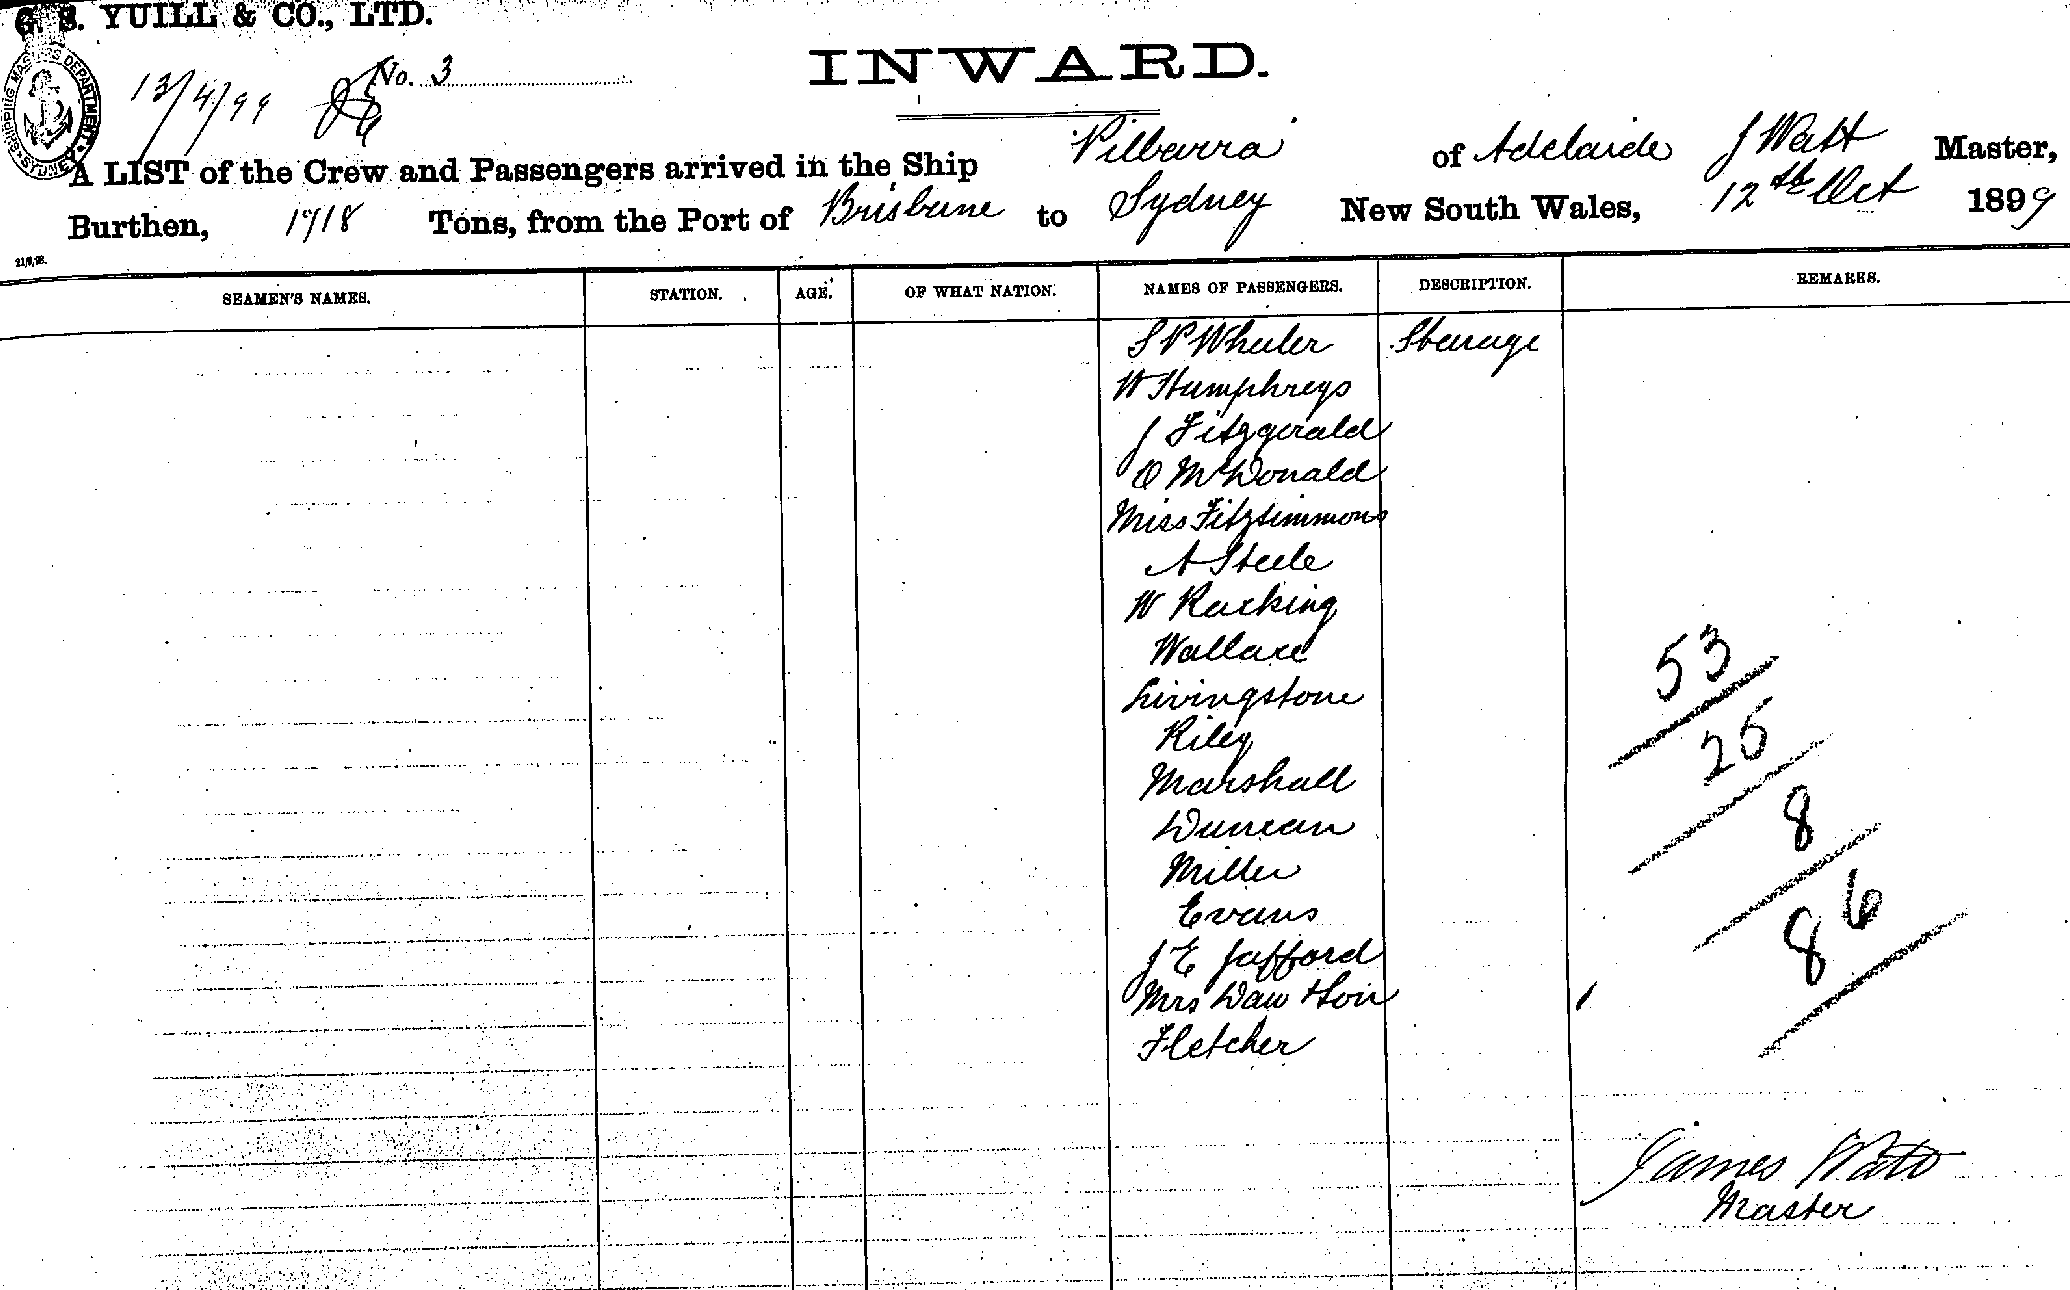 G. S. YUILL & CO., LTD.
SHIPPING MASTERS DEPARTMENT SYDNEY
INWARD.
13/4/99 No. 3
A LIST of the Crew and Passengers arrived in the Ship Pilbarra of Adelaide J Watt Master,
Burthen, 1718 Tons, from the Port of Brisbane to Sydney New South Wales, 12th Oct 1899
SEAMEN'S NAMES. STATION. AGE. OF WHAT NATION. NAMES OF PASSENGERS. DESCRIPTION. REMARKS.
S P Wheeler Steerage
W Humphreys
J Fitzgerald
O McDonald
Miss Fitzsimmons
A Steele
W Racking
Wallace
Livingstone
Riley
Marshall
Duncan
Miller
Evans
J E Jafford
Mrs Daw & Son
Fletcher
53
25
8
86
James Watt
Master